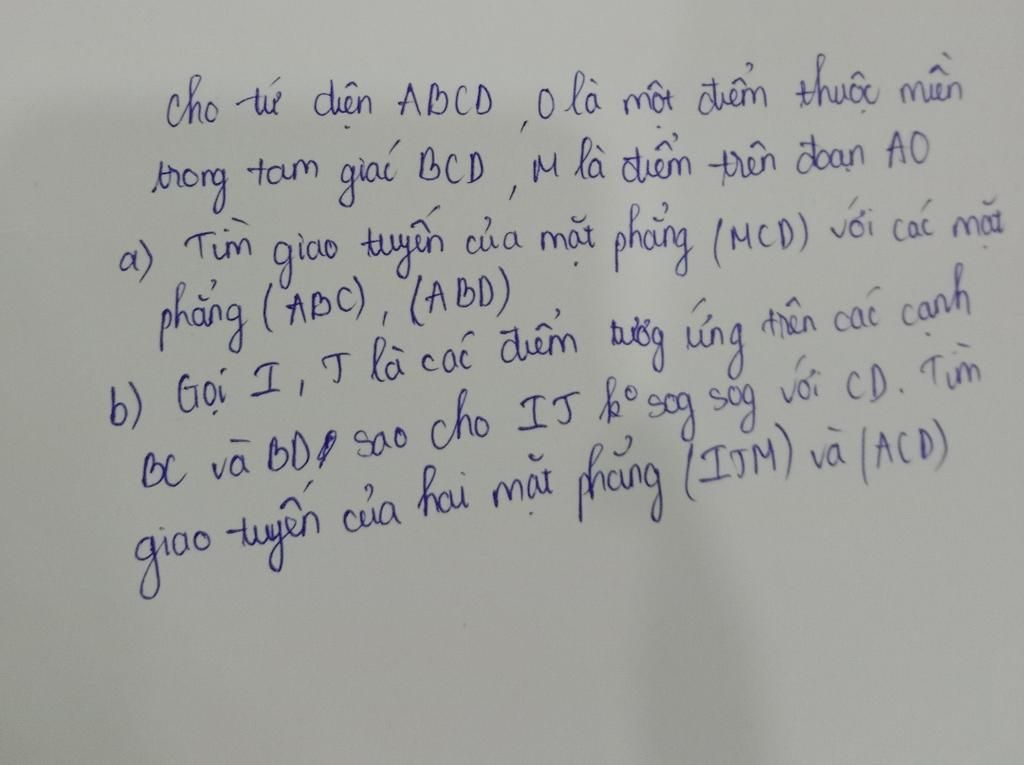 cho tứ diện ABCD, O là một điểm thuộc miền
trong tam giác BCD, M là điểm trên đoạn AO
a) Tìm giao tuyến của mặt phẳng (MCD) với các mặt
phẳng (ABC), (ABD)
b) Gọi I, J là các điểm tướg ứng trên các cạnh
BC và BD sao cho IJ ko sog sog với CD. Tìm
giao tuyến của hai mặt phẳng (IJM) và (ACD)